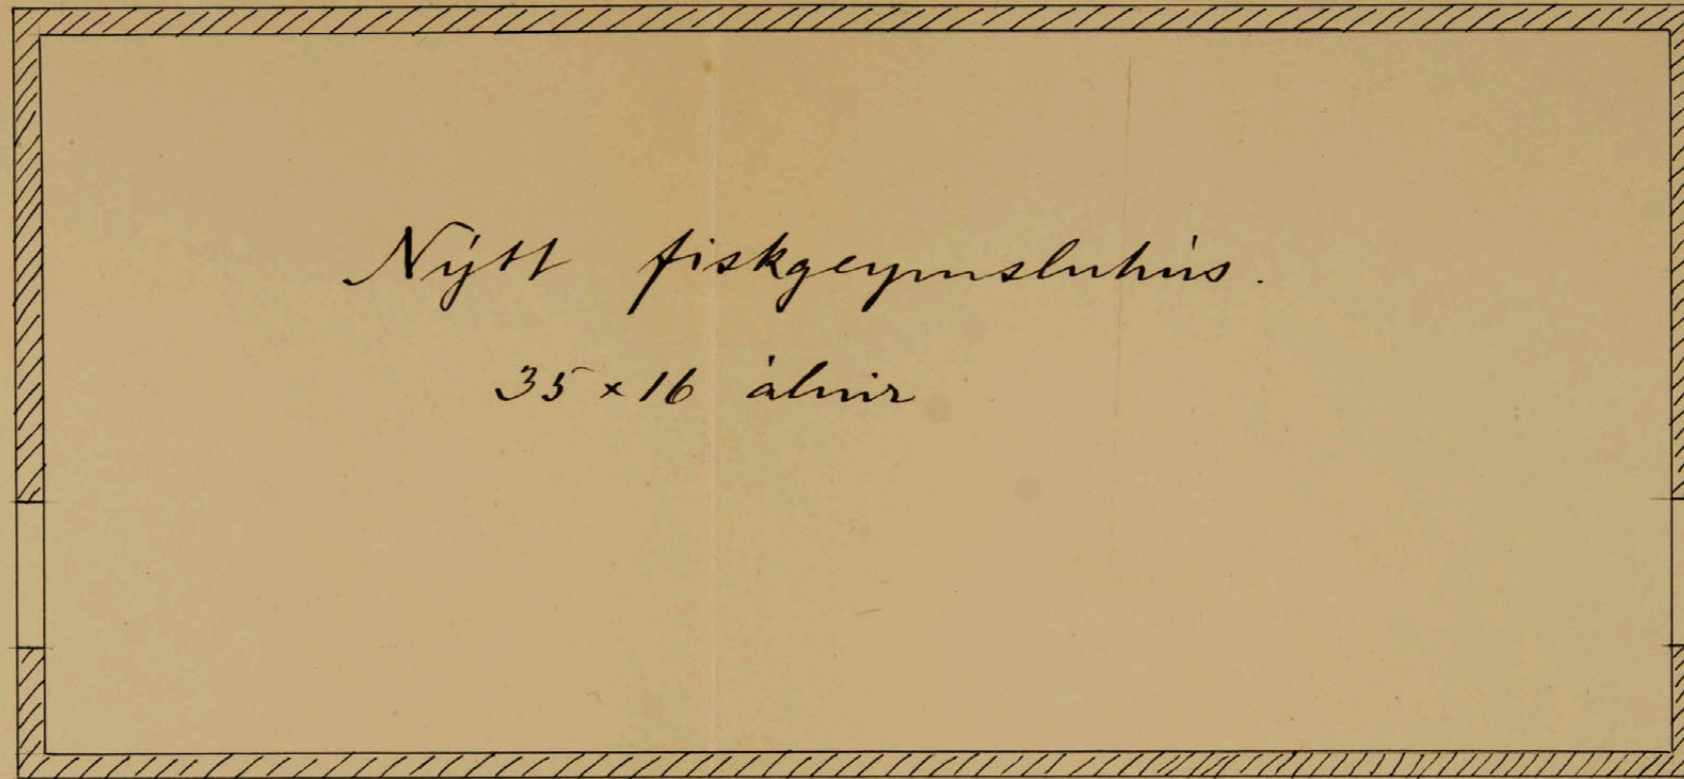 Nýtt fiskgeymsluhús.
35 × 16 álnir